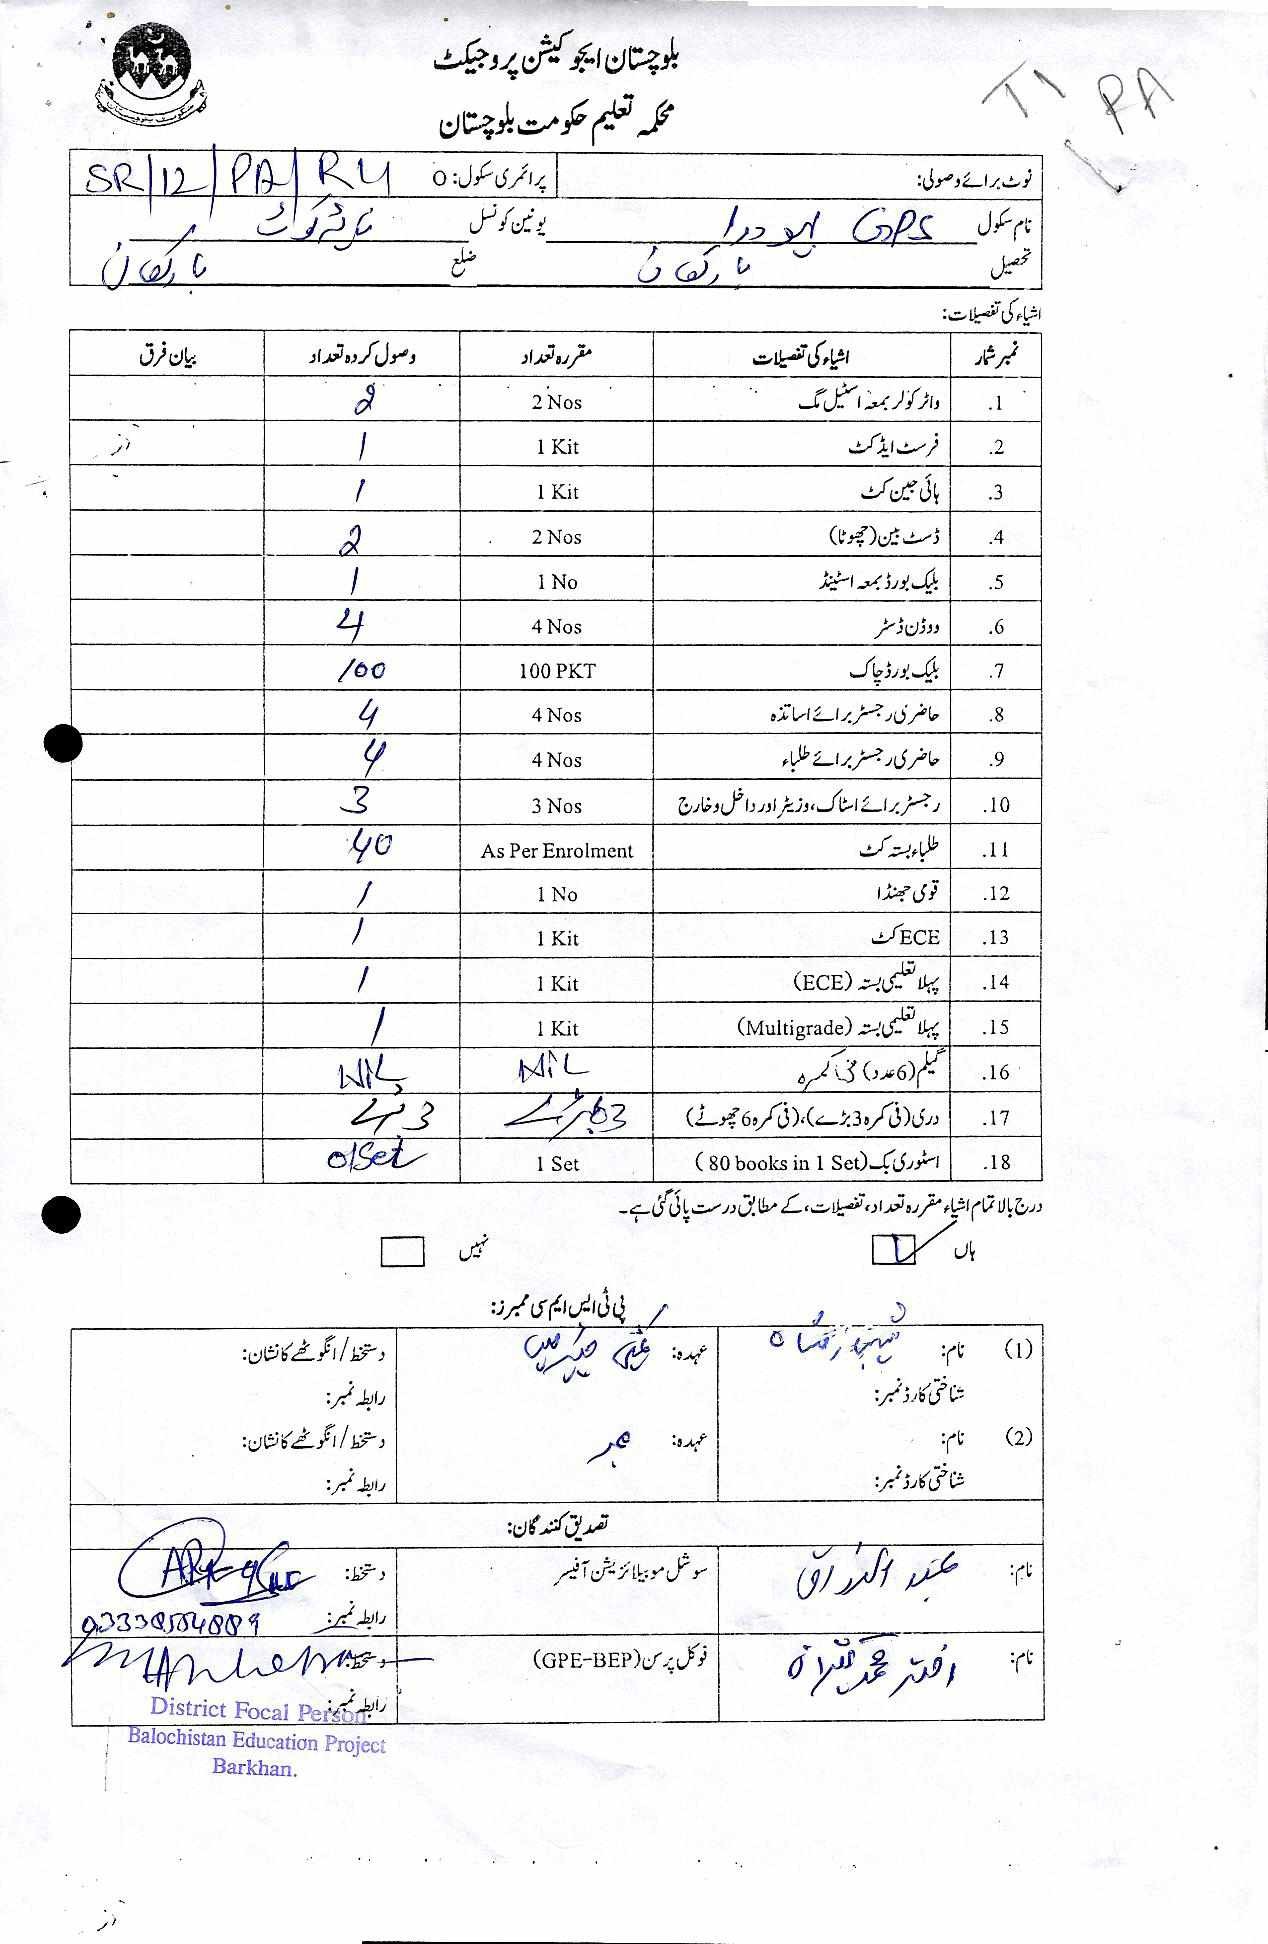 بلوچستان ایجوکیشن پروجیکٹ
محکمہ تعلیم حکومت بلوچستان
T1
PA
نوٹ برائے وصولی: پرائمری سکول: O SR/12/PA/RU
نام سکول GPS یونین کونسل
تحصیل بارکھان ضلع بارکھان
اشیاء کی تفصیلات:
نمبر شمار اشیاء کی تفصیلات مقررہ تعداد وصول کردہ تعداد بیان فرق
1. واٹر کولر بمعہ اسٹیل مگ 2 Nos 2
2. فرسٹ ایڈ کٹ 1 Kit 1
3. ہائی جین کٹ 1 Kit 1
4. ڈسٹ بین (چھوٹا) 2 Nos 2
5. بلیک بورڈ بمعہ اسٹینڈ 1 No 1
6. ووڈن ڈسٹر 4 Nos 4
7. بلیک بورڈ چاک 100 PKT 100
8. حاضری رجسٹر برائے اساتذہ 4 Nos 4
9. حاضری رجسٹر برائے طلباء 4 Nos 4
10. رجسٹر برائے اسٹاک، وزیٹر اور داخل و خارج 3 Nos 3
11. طلباء بستہ کٹ As Per Enrolment 40
12. قومی جھنڈا 1 No 1
13. ECE کٹ 1 Kit 1
14. پہلا تعلیمی بستہ (ECE) 1 Kit 1
15. پہلا تعلیمی بستہ (Multigrade) 1 Kit 1
16. گلیم (6 عدد) فی کمرہ NIL NIL
17. دری (فی کمرہ 3 بڑے)، (فی کمرہ 6 چھوٹے) 3 بڑے 3 بڑے
18. اسٹوری بک (80 books in 1 Set) 1 Set 01 Set
درج بالا تمام اشیاء مقررہ تعداد، تفصیلات، کے مطابق درست پائی گئی ہے۔
ہاں نہیں
پی ٹی ایس ایم سی ممبرز:
(1) نام: عہدہ: دستخط/انگوٹھے کا نشان:
شناختی کارڈ نمبر: رابطہ نمبر:
(2) نام: عہدہ: ممبر دستخط/انگوٹھے کا نشان:
شناختی کارڈ نمبر: رابطہ نمبر:
تصدیق کنندگان:
نام: عبد الرزاق سوشل موبیلائزیشن آفیسر دستخط:
رابطہ نمبر: 03338504889
نام: اختر محمد فوکل پرسن (GPE-BEP) دستخط:
رابطہ نمبر:
District Focal Person
Balochistan Education Project
Barkhan.